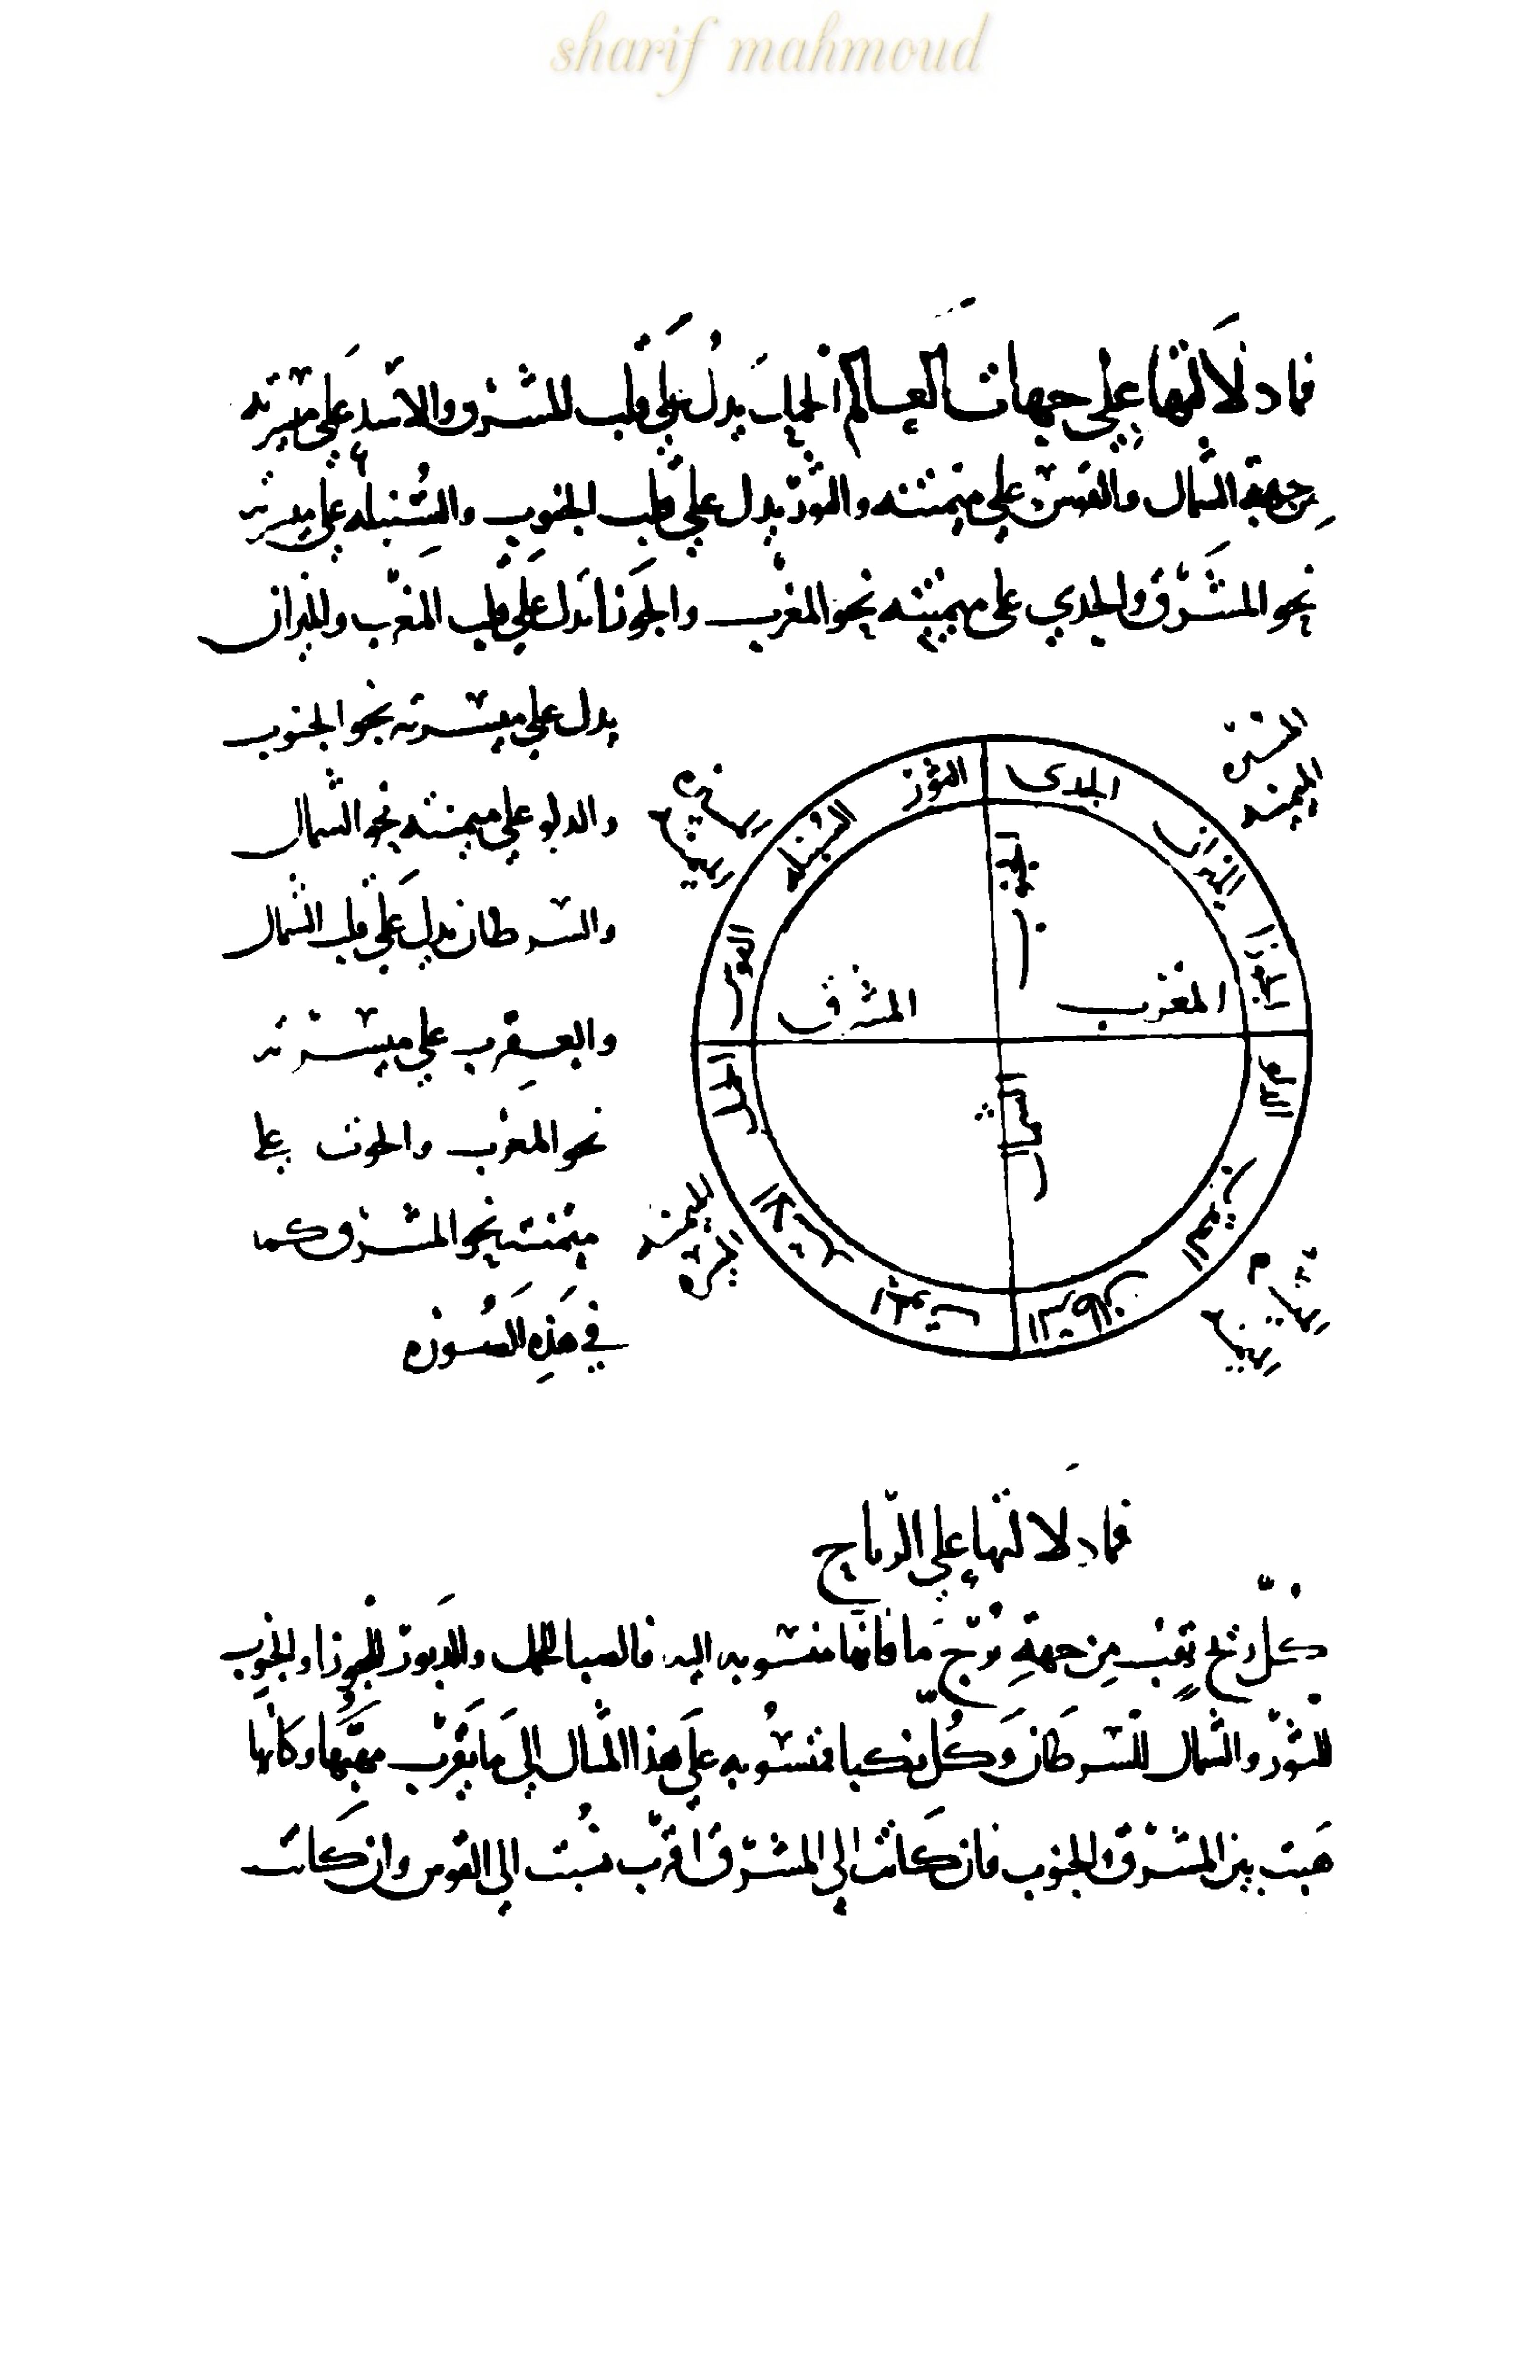 sharif mahmoud
فما دلالتها على جهات العالم الحمل يدل على قلب المشرق والاسد على ميسرته
من جهة الشمال والقوس على ميمنته والثور يدل على قلب الجنوب والسنبله على ميسرته
نحو المشرق والجدي على ميمنته نحو المغرب والجوزا تدل على قلب المغرب والميزان
يدل على ميسرته نحو الجنوب
والدلو على ميمنته نحو الشمال
والسرطان يدل على قلب الشمال
والعقرب على ميسرته
نحو المغرب والحوت على
ميمنته نحو المشرق كما
في هذه الصوره
الميسره
الميمنه
الجدى
الميزان
الجوزا
الدلو
العقرب
السرطان
الحوت
الاسد
الحمل
القوس
السنبله
الثور
الجنوب
المغرب
المشرق
الشمال
الميمنه
الميسره
فما دلالتها على الرياح
كل ريح تهب من جهة برج ما فانها منسوبه اليه فالصبا للحمل والدبور للجوزا والجنوب
للثور والشمال للسرطان وكل نكبا فمنسوبه على هذا المثال الى ما يقرب مهبها وكانها
هبت بين المشرق والجنوب فان كانت الى المشرق اقرب نسبت الى القوس وان كانت